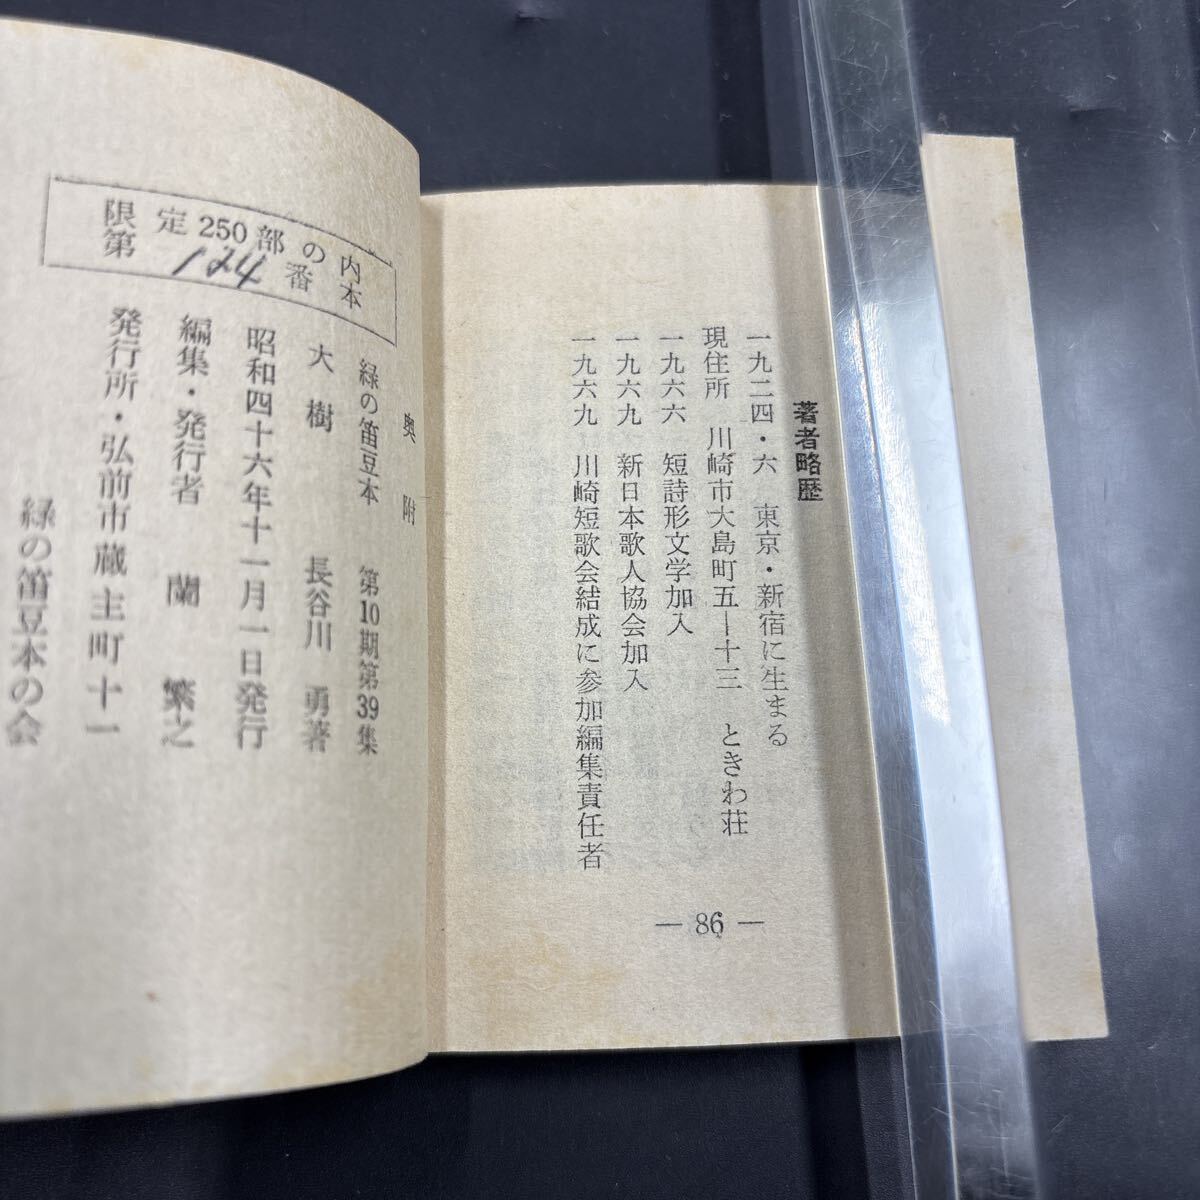 著者略歴
一九二四・六　東京・新宿に生まる
現住所　川崎市大島町五―十三　ときわ荘
一九六六　短詩形文学加入
一九六九　新日本歌人協会加入
一九六九　川崎短歌会結成に参加編集責任者
― 86 ―
奥附
緑の笛豆本　第10期第39集
大樹　長谷川　勇著
昭和四十六年十一月一日発行
編集・発行者　蘭　繁之
発行所・弘前市蔵主町十一
緑の笛豆本の会
限定250部の内
第124番本